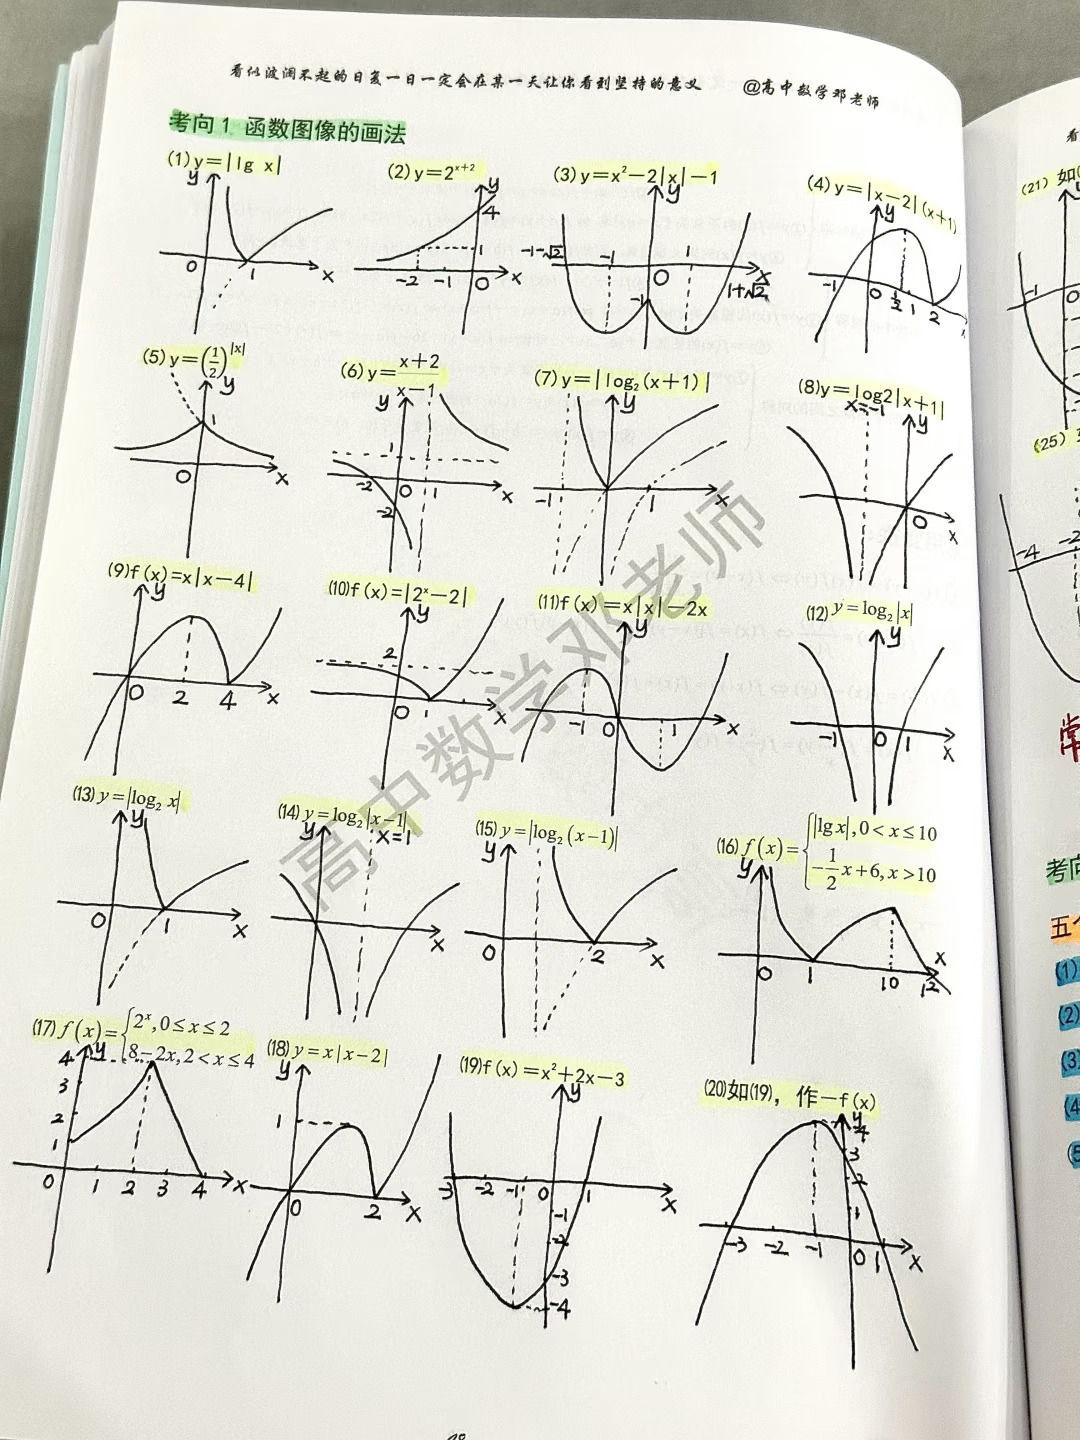 看似波澜不起的日复一日一定会在某一天让你看到坚持的意义 @高中数学邓老师
考向1 函数图像的画法
(1) y=|lg x|
(2) y=2^{x+2}
(3) y=x²-2|x|-1
(4) y=|x-2|(x+1)
y x 0 1
y 4 1 -2 -1 0 x
y -1-√2 -1 1 0 x 1+√2 -1
y -1 0 ½ 1 2 x
(5) y=(1/2)^{|x|}
(6) y=x+2/x-1
(7) y=|log₂(x+1)|
(8) y=log2|x+1|
y 1 0 x
y 1 -2 0 1 x -2
y -1 1 x
x=-1 y 0 x
(9) f(x)=x|x-4|
(10) f(x)=|2^x-2|
(11) f(x)=x|x|-2x
(12) y=log₂|x|
y 0 2 4 x
y 2 0 1 x
y -1 0 1 x
y -1 0 1 x
(13) y=|log₂ x|
(14) y=log₂|x-1|
(15) y=|log₂(x-1)|
(16) f(x)={|lgx|,0<x≤10
-1/2x+6,x>10
y 0 1 x
y x=1 x
y 0 2 x
y 0 1 10 12 x
(17) f(x)={2^x,0≤x≤2
8-2x,2<x≤4
(18) y=x|x-2|
(19) f(x)=x²+2x-3
(20) 如(19),作-f(x)
y 4 3 2 1 0 1 2 3 4 x
y 1 0 2 x
y -3 -2 -1 0 1 x -1 -2 -3 -4
y 4 3 2 1 -3 -2 -1 0 1 x
高中数学邓老师
看
(21) 如
y
-1 0
(25)
-4 -2
常
考向
五个
(1)
(2)
(3)
(4)
(5)